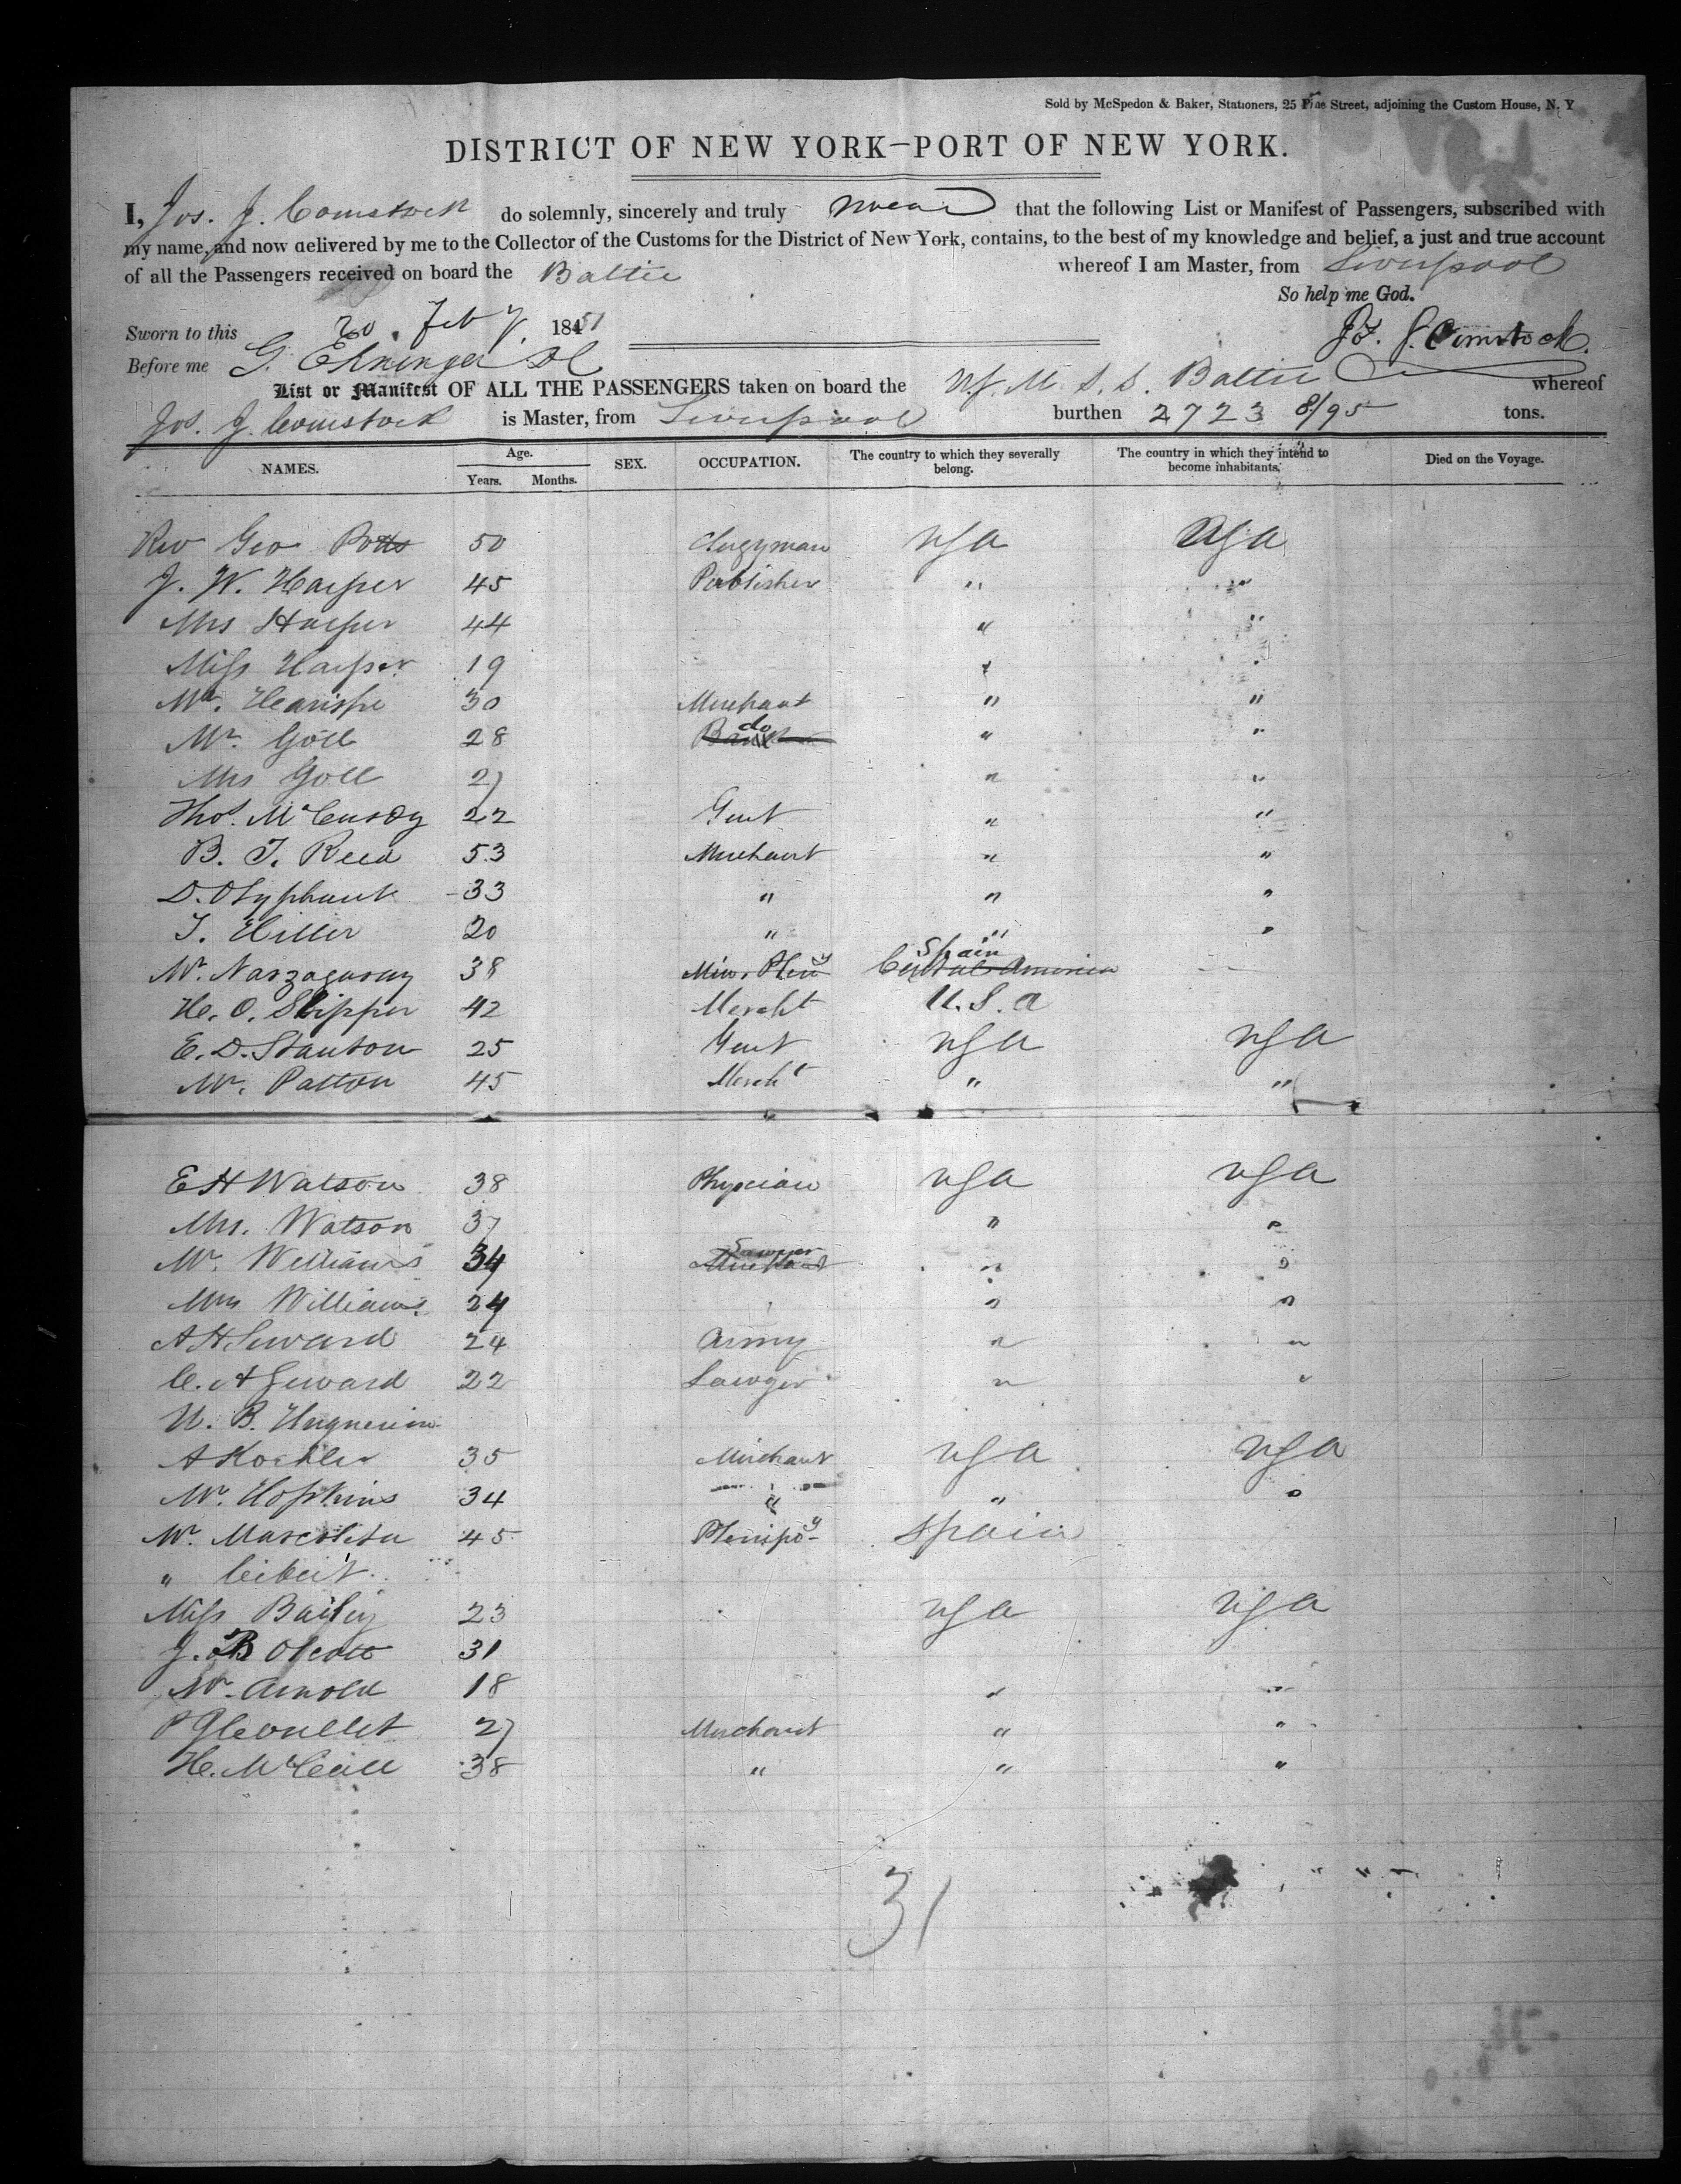 Sold by McSpedon & Baker, Stationers, 25 Pine Street, adjoining the Custom House, N. Y
DISTRICT OF NEW YORK—PORT OF NEW YORK.
I, Jos. J. Comstock do solemnly, sincerely and truly swear that the following List or Manifest of Passengers, subscribed with
my name, and now delivered by me to the Collector of the Customs for the District of New York, contains, to the best of my knowledge and belief, a just and true account
of all the Passengers received on board the Baltic whereof I am Master, from Liverpool
So help me God.
Sworn to this 20 Feby 1851
Jos. J. Comstock
Before me G. Ehninger
List or Manifest OF ALL THE PASSENGERS taken on board the U.S.M.S.S. Baltic whereof
Jos. J. Comstock is Master, from Liverpool burthen 2723 8/95 tons.
NAMES. Age. Years. Months. SEX. OCCUPATION. The country to which they severally belong. The country in which they intend to become inhabitants. Died on the Voyage.
Rev Geo Potts 50 Clergyman USA USA
J. W. Harper 45 Publisher " "
Mrs Harper 44 " "
Miss Harper 19 " "
Mr. 30 Merchant " "
Mr. Goll 28 do " "
Mrs Goll 27 " "
Thos. McCurdy 22 Gent " "
B. T. Reed 53 Merchant " "
D. Olyphant 33 " " "
T. Hiller 20 " " "
Mr. 38 Min. Pleny Spain Central America
H. O. Skipper 42 Mercht U.S.A
E. D. Stanton 25 Gent USA USA
Mr. Patton 45 Mercht " "
E H Watson 38 Physcian USA USA
Mrs. Watson 37 " "
Mr. Williams 34 Lawyer Merchant " "
Mrs Williams 24 " "
A H Seward 24 Army " "
C. A Seward 22 Lawyer " "
U. B.
A Koehler 35 Merchant USA USA
Mr. Hopkins 34 " " "
Mr. 45 Plenipoy Spain
"
Miss Bailey 23 USA USA
J. B Olcott 31
Mr. Arnold 18 " "
P 27 Merchant " "
H. McCall 38 " " "
31